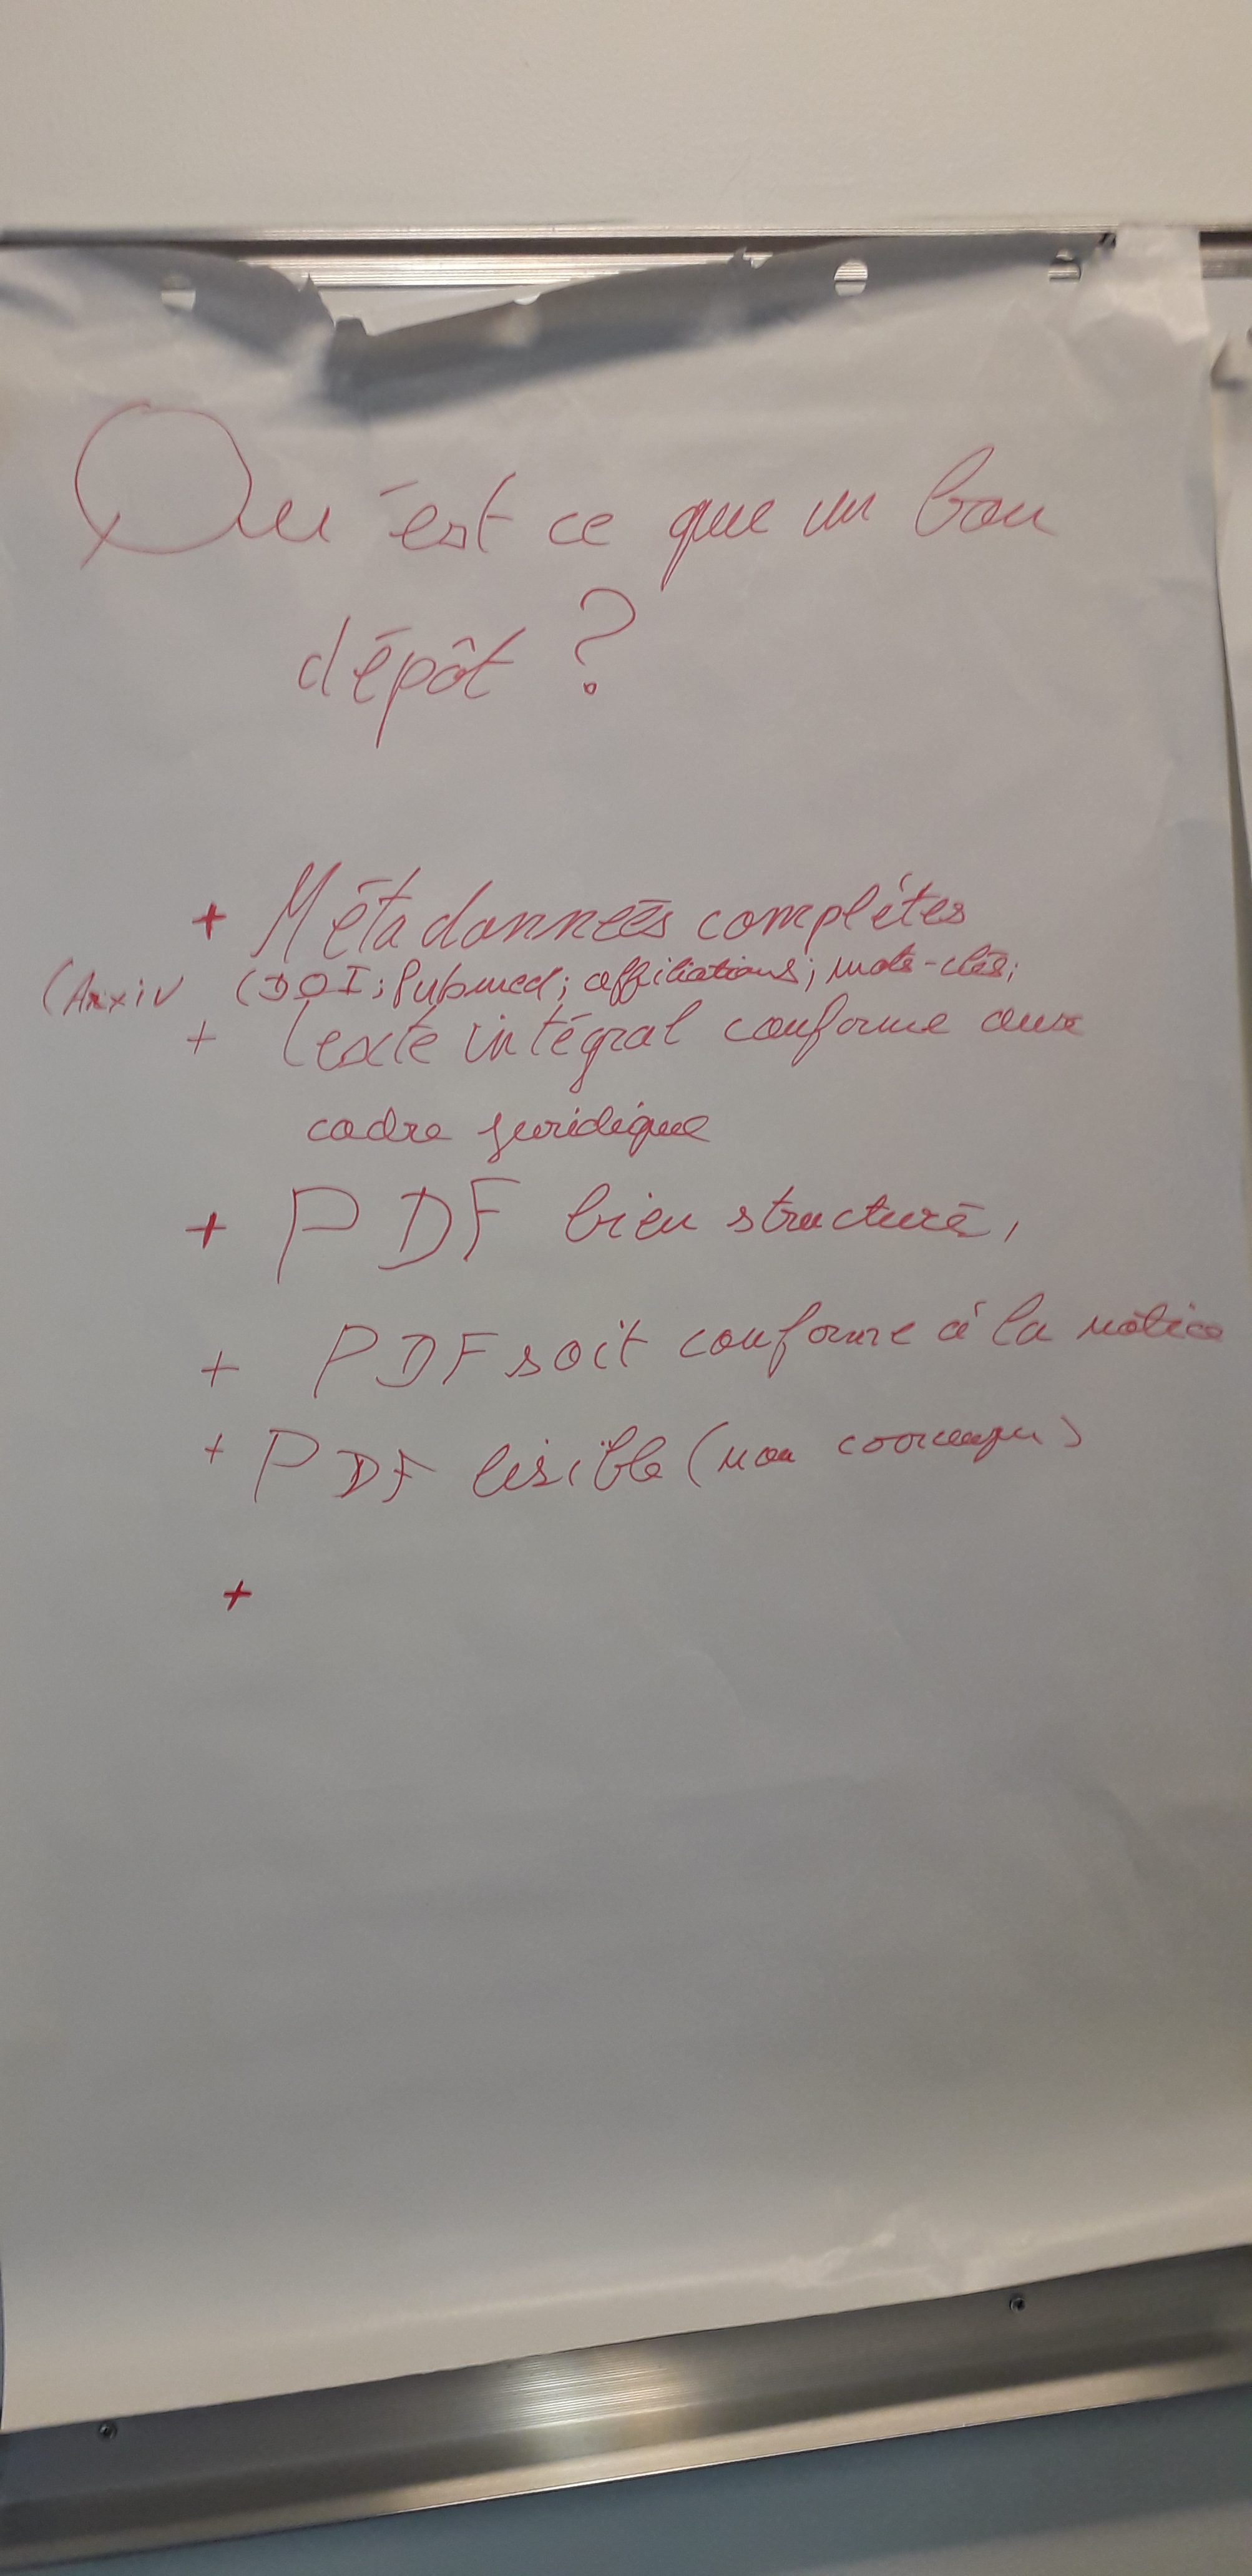 Qu'est ce que un bon
dépôt ?
+ Métadonnées complètes
(Arxiv (DOI; Pubmed; affiliations; mots-clés;
+ texte intégral conforme aux
cadre juridique
+ PDF bien structuré,
+ PDF soit conforme à la notice
+ PDF lisible (non
+